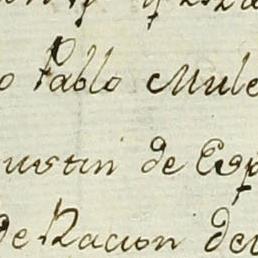 o Pablo Mule
ustin de Esp
de Nacion de